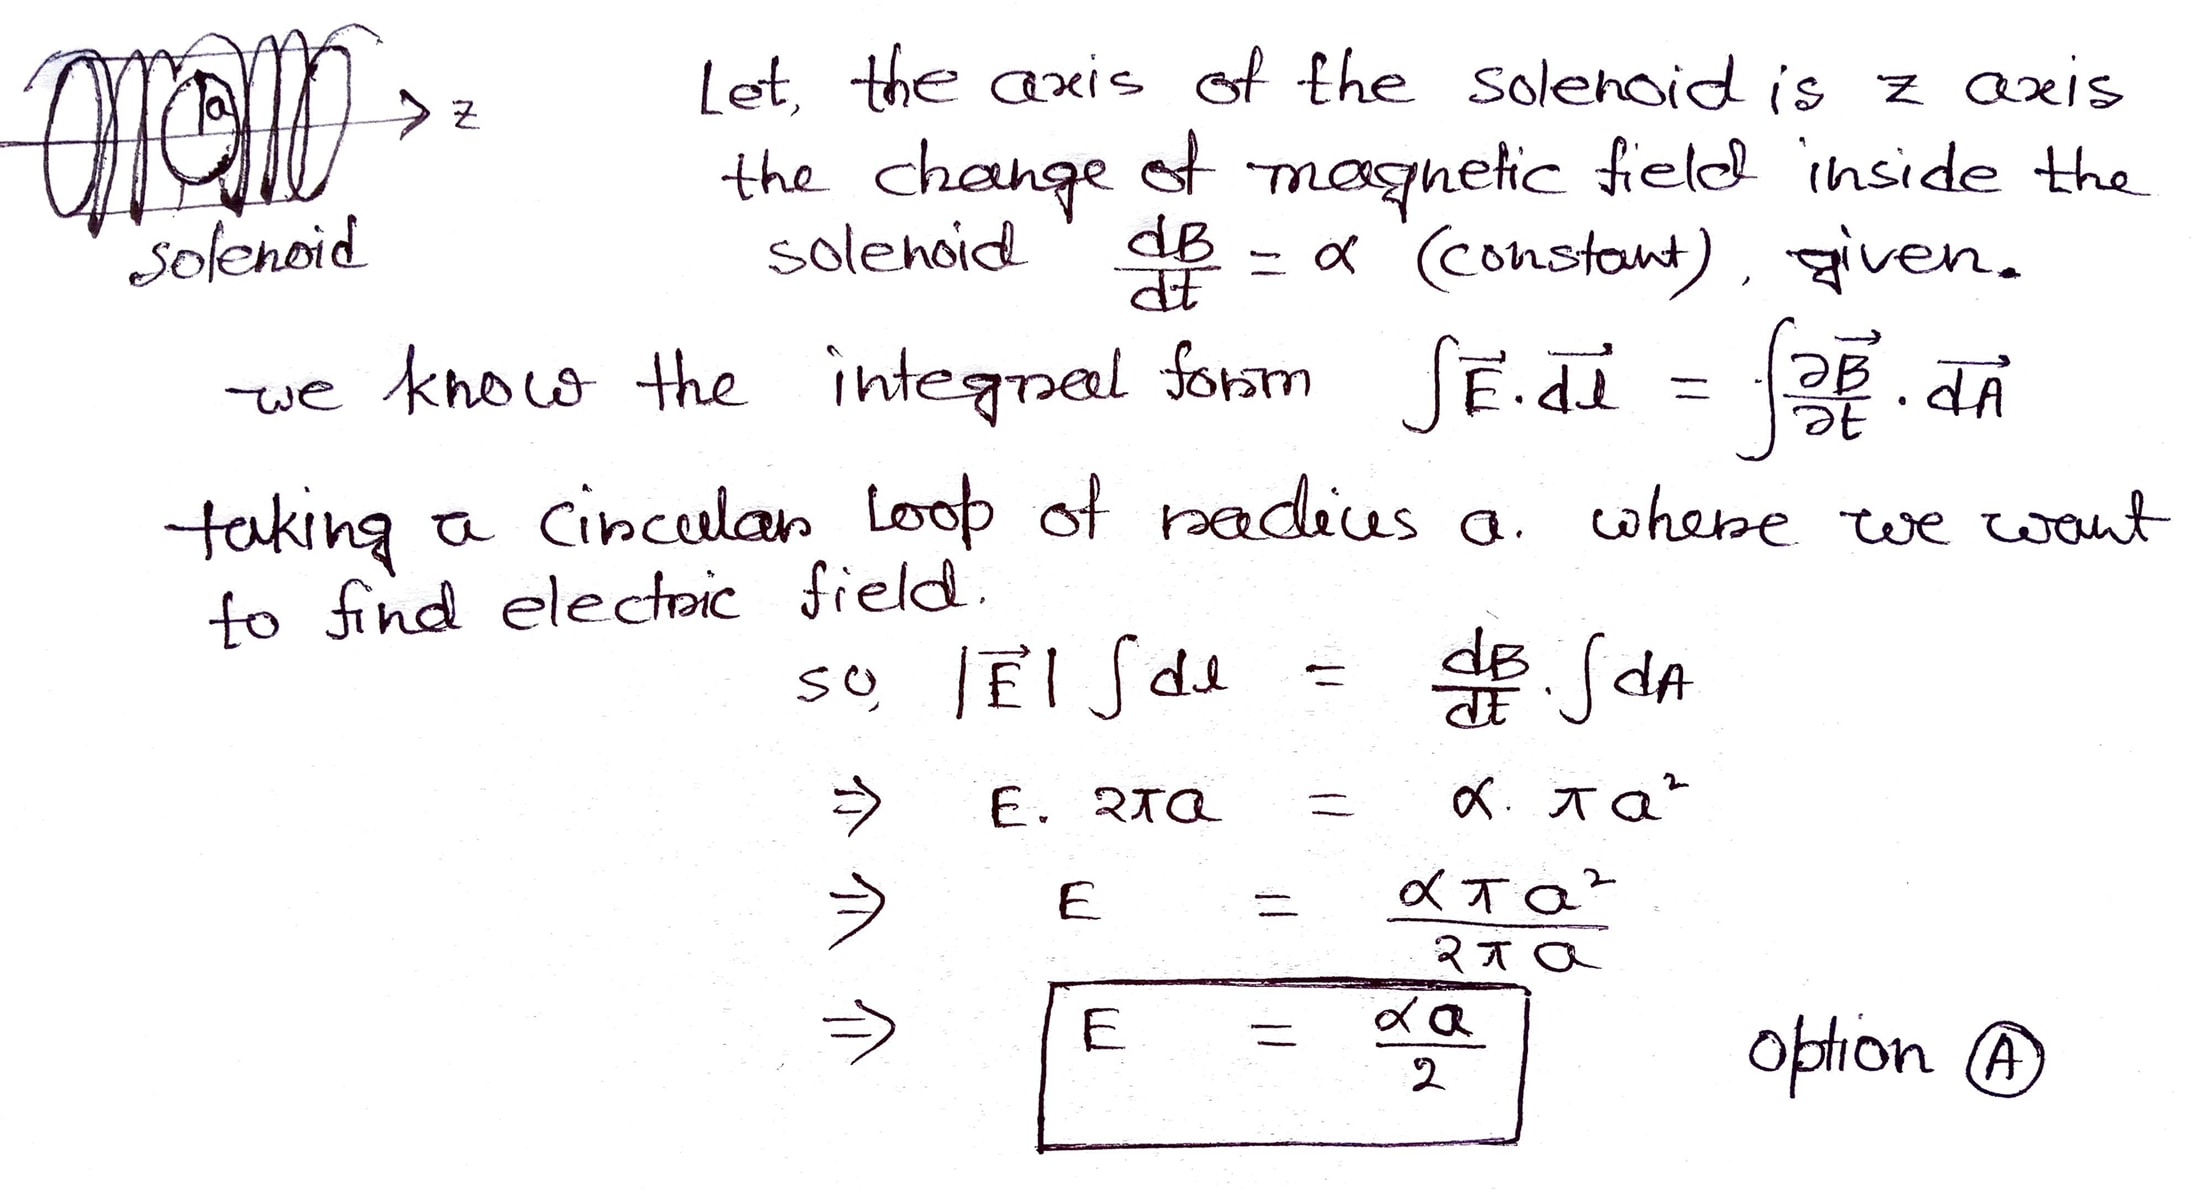 a
z
solenoid
Let, the axis of the solenoid is z axis
the change of magnetic field inside the
solenoid dB/dt = α (constant), given.
we know the integral form ∫E⃗.dl⃗ = ∫∂B⃗/∂t . dA⃗
taking a circular loop of radius a. where we want
to find electric field.
so, |E⃗| ∫dl = dB/dt . ∫dA
⇒ E. 2πa = α. πa²
⇒ E = απa²/2πa
⇒ E = αa/2
option Ⓐ